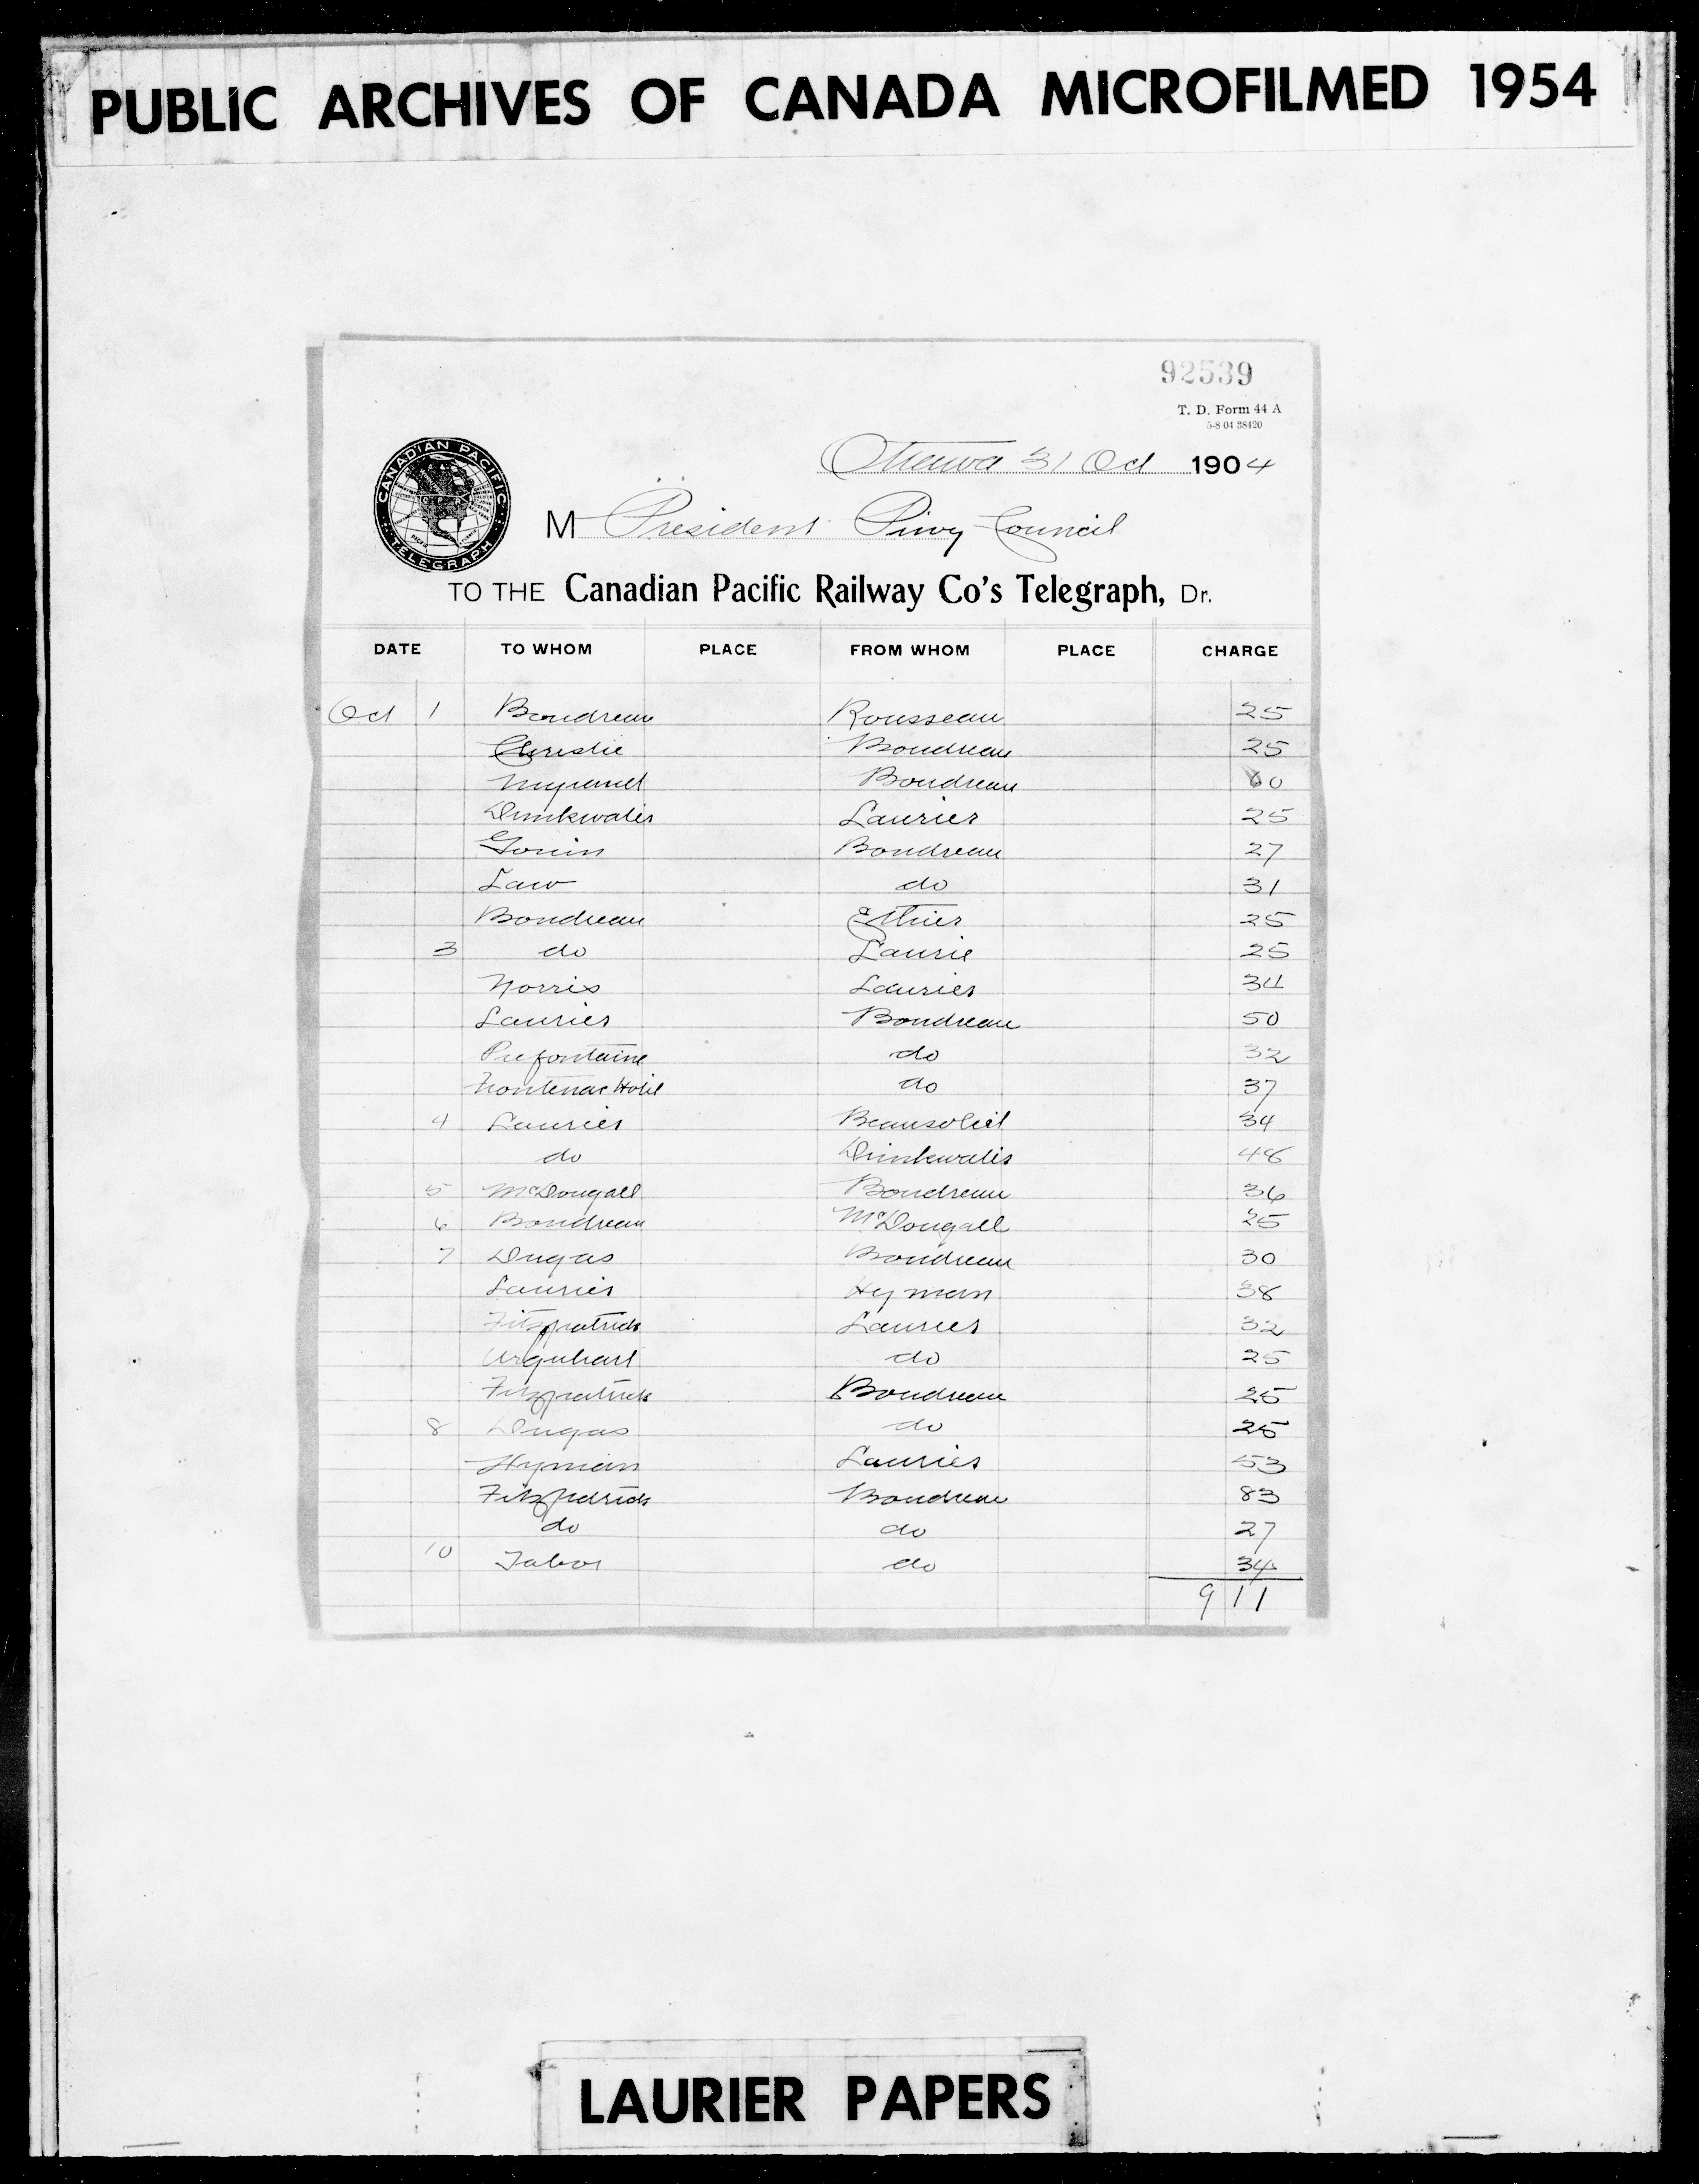 PUBLIC ARCHIVES OF CANADA MICROFILMED 1954
92539
T. D. Form 44 A
5-8 04 38420
Ottawa 31 Oct 1904
CANADIAN PACIFIC TELEGRAPH
M President Privy Council
TO THE Canadian Pacific Railway Co's Telegraph, Dr.
DATE TO WHOM PLACE FROM WHOM PLACE CHARGE
Oct 1 Boudreau Rousseau 25
Christie Boudreau 25
Myrand Boudreau 60
Drinkwater Laurier 25
Gouin Boudreau 27
Law do 31
Boudreau Ethier 25
3 do Laurie 25
Norris Laurier 34
Laurier Boudreau 50
Prefontaine do 32
Frontenac Hotel do 37
4 Laurier Beausoleil 34
do Drinkwater 48
5 McDougall Boudreau 36
6 Boudreau McDougall 25
7 Dugas Boudreau 30
Laurier Hyman 38
Fitzpatrick Laurier 32
Urquhart do 25
Fitzpatrick Boudreau 25
8 Dugas do 25
Hyman Laurier 53
Fitzpatrick Boudreau 83
do do 27
10 Tabor do 34
9 11
LAURIER PAPERS